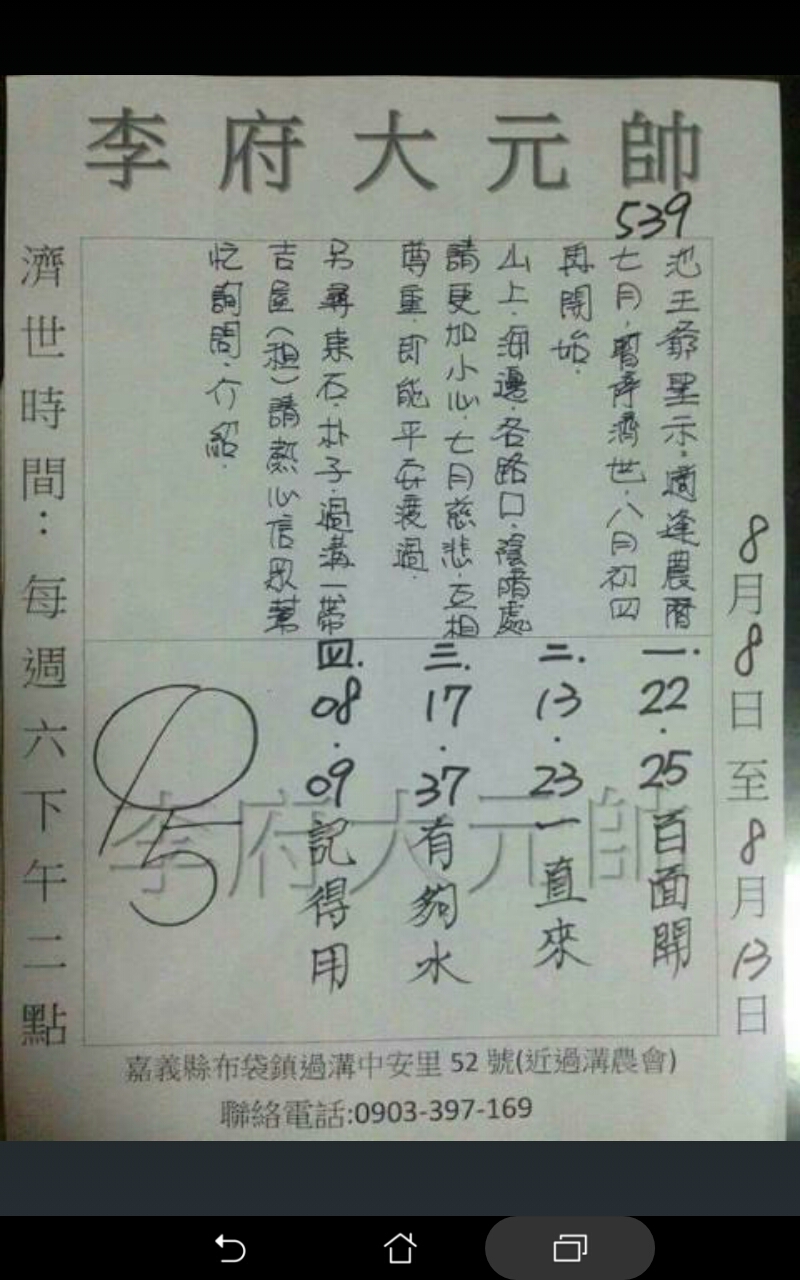 李府大元帥
539
8月8日至8月13日
池王爺聖示.適逢農曆
七月.暫停濟世.八月初四
再開始.
山上.海邊.各路口.陰暗處
請更加小心.七月慈悲.互相
尊重.即能平安渡過.
另尋東石.朴子.過溝一帶
吉屋(租)請熱心信眾幫
忙詢問.介紹.
一.22.25百面開
二.13.23一直來
三.17.37有夠水
四.08.09記得用
李府大元帥
濟世時間：每週六下午二點
嘉義縣布袋鎮過溝中安里52號(近過溝農會)
聯絡電話:0903-397-169